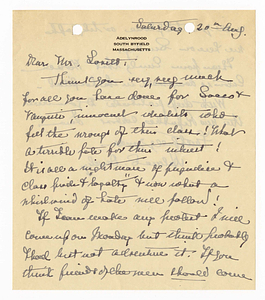 Saturday 20th Aug.
ADELYNROOD
SOUTH BYFIELD
MASSACHUSETTS
Dear Mr Lovett,
Thank you very, very much
for all you have done for Sacco &
Vanzetti, innocent idealists who
felt the wrongs of their class! What
a terrible fate for this unrest!
It is all a nightmare of prejudice &
class pride & loyalty & now what a
whirlwind of hate will follow!
If I can make any protest I will
come up on Monday but think probably
I had but not advertise it. If you
think friends of the men should come